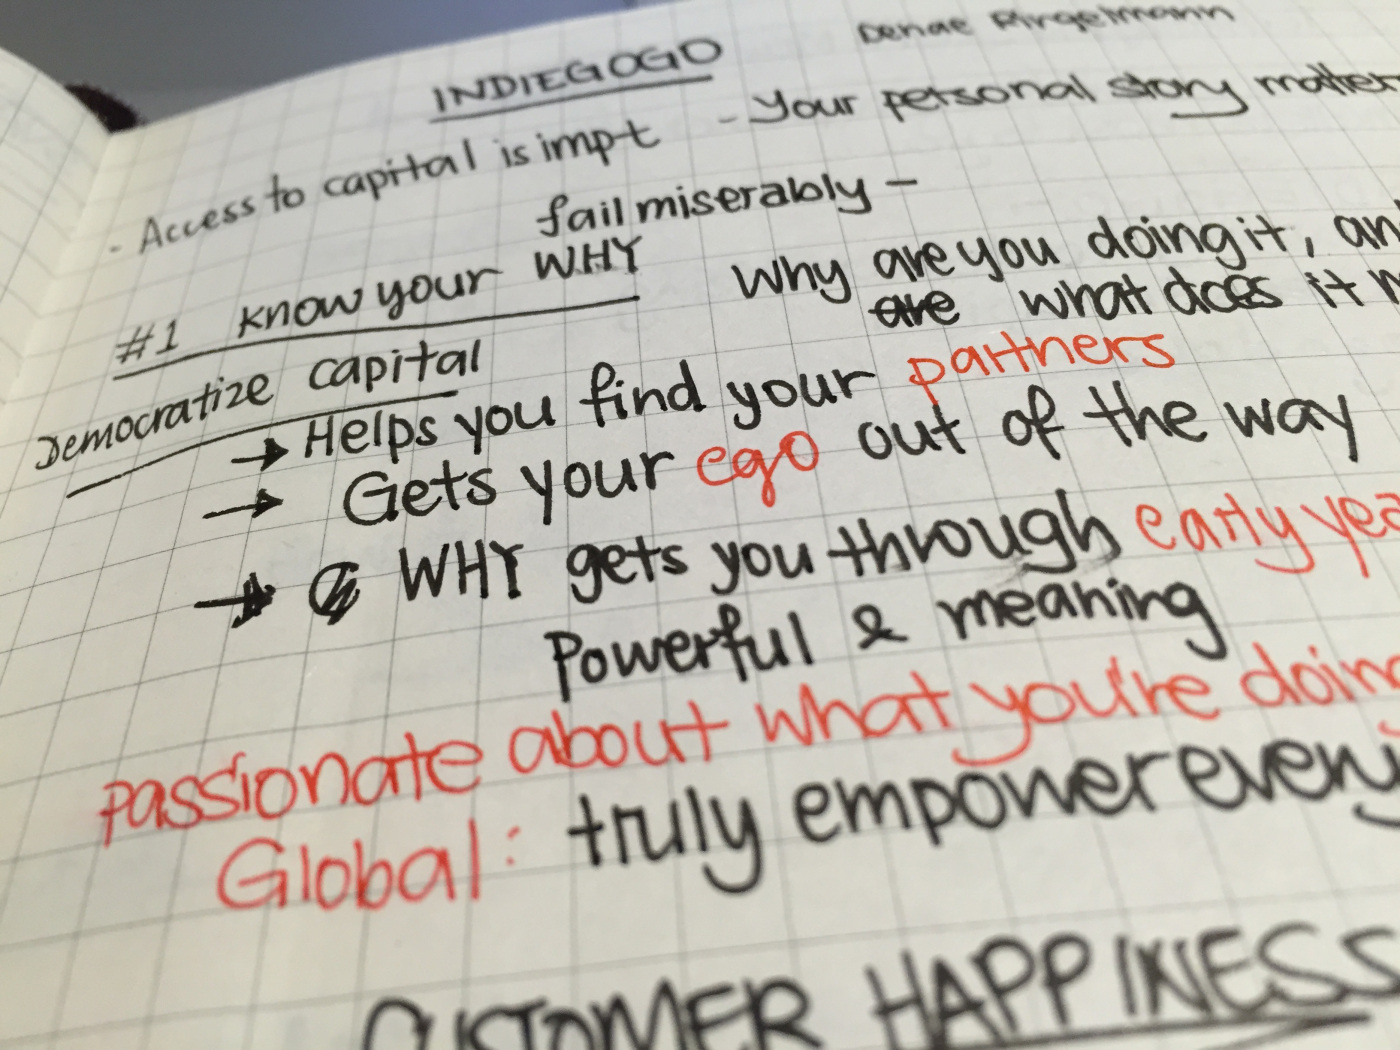 INDIEGOGO
Danae Ringelmann
- Access to capital is imp-t
- Your personal story matter
fail miserably -
#1 know your WHY
Why are you doing it, an
are what does it m
Democratize capital
→ Helps you find your partners
→ Gets your ego out of the way
→ WHY gets you through early yea
Powerful & meaning
passionate about what you're doing
Global: truly empower every
CUSTOMER HAPPINESS